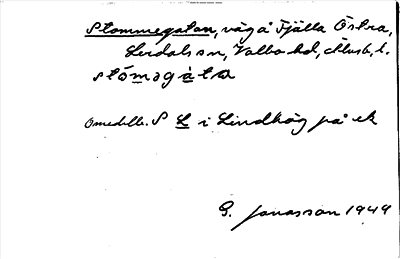 Stommegatan, väg å Fjälla Östra,
Lerdals sn, Valbo hd, Älvsb. l.
stóməgàta
Omedelb. S L i Lindhög på ek
G. Jonasson 1949